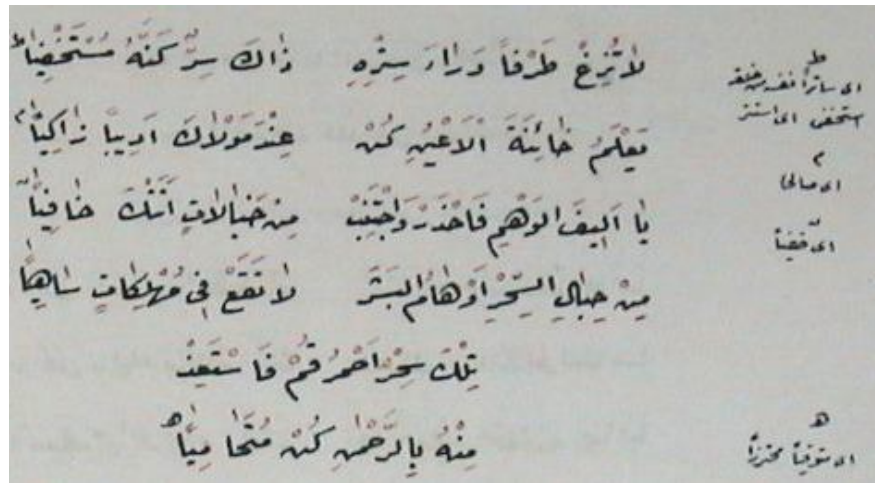 لَا تُزِغْ طَرْفًا وَرَاءَ سِتْرِهِ ذَاكَ سِرٌّ كَنَّهُ مُسْتَخْفِيًا ط
يَعْلَمُ خَائِنَةَ الْأَعْيُنِ كُنْ عِنْدَ مَوْلَاكَ أَدِيبًا زَاكِيًا م
يَا أَلِيفَ الْوَهْمِ فَاحْذَرْ وَاجْتَنِبْ مِنْ خَيَالَاتٍ أَتَتْكَ خَافِيًا
مِنْ حِبَالِ السِّحْرِ أَوْهَامُ الْبَشَرَ لَا تَقَعْ فِي مُهْلِكَاتٍ سَاهِيًا
تِلْكَ سِحْرٌ أَحْمَرُ قُمْ فَاسْتَعِذْ
مِنْهُ بِالرَّحْمَنِ كُنْ مُتَحَامِيًا ه
ط
اى ساترا
استخفى اى استتر
م
اى صالحا
اى خفيا
ه
اى متوقيا محترزا